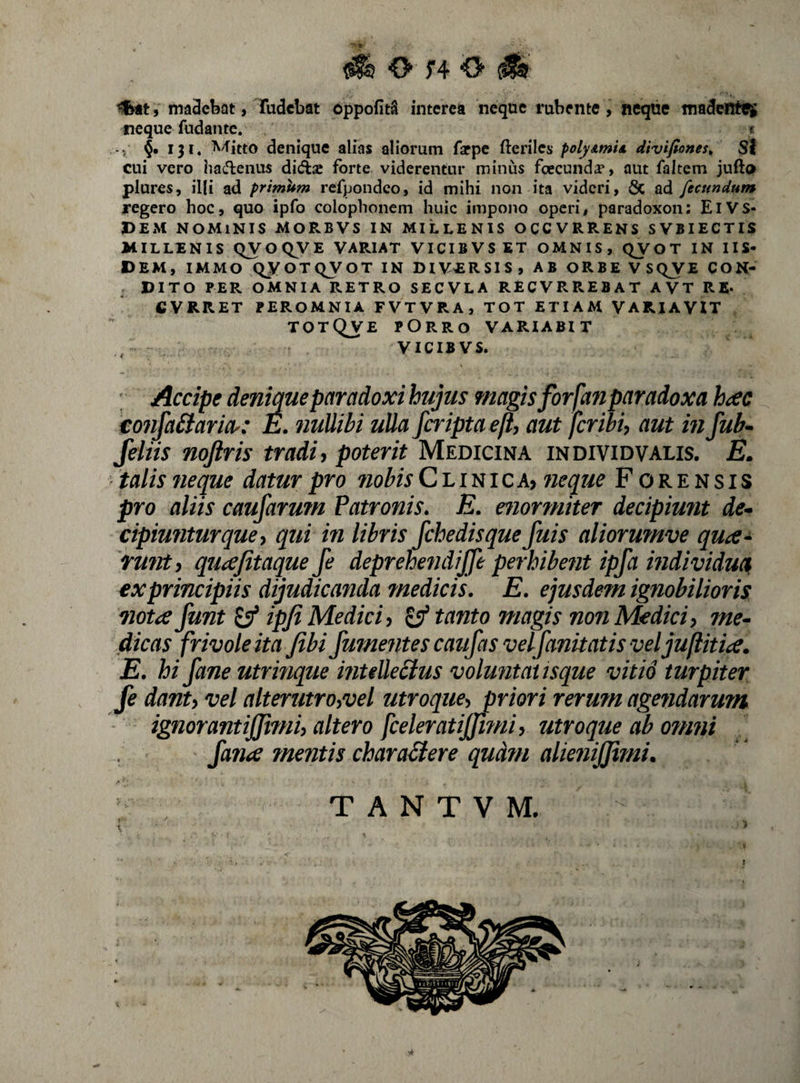 O 54 O
bat, madebat, ſudebat oppoſitâ interea neque rubente, neque madente,
neque ſudante.
§. 131. Mitto denique alias aliorum ſæpe ſteriles polyæmiæ diviſiones. Si
cui vero hactenus dictæ forte viderentur minùs fœcundæ, aut ſaltem juſto
plures, illi ad primùm reſpondeo, id mihi non ita videri, & ad ſecundum
regero hoc, quo ipſo colophonem huic impono operi, paradoxon: EIVS-
DEM NOMINIS MORBVS IN MILLENIS OCCVRRENS SVBIECTIS
MILLENIS QVOQVE VARIAT VICIBVS ET OMNIS, QVOT IN IIS-
DEM, IMMO QVOTQVOT IN DIVERSIS, AB ORBE VSQVE CON-
DITO PER OMNIA RETRO SECVLA RECVRREBAT AVT RE-
CVRRET PEROMNIA FVTVRA, TOT ETIAM VARIAVIT
TOTQVE PORRO VARIABIT
VICIBVS.
Accipe denique paradoxi hujus magis forſan paradoxa hæc
conſactaria: E. nullibi ulla ſcripta eſt, aut ſcribi, aut in ſub-
ſeliis noſtris tradi, poterit MEDICINA INDIVIDVALIS. E.
talis neque datur pro nobis CLINICA, neque FORENSIS
pro aliis cauſarum Patronis. E. enormiter decipiunt de-
cipiunturque, qui in libris ſchedisque ſuis aliorumve quæ-
runt, quæſitaque ſe deprehendiſſe perhibent ipſa individua
ex principiis dijudicanda medicis. E. ejusdem ignobilioris
notæ ſunt & ipſi Medici, & tanto magis non Medici, me-
dicas frivole ita ſibi ſumentes cauſas vel ſanitatis vel juſtitiæ.
E. hi ſane utrinque intellectus voluntatisque vitió turpiter
ſe dant, vel alterutro, vel utroque, priori rerum agendarum
ignorantiſſimi, altero ſceleratiſſimi, utroque ab omni
ſanæ mentis charactere quàm alieniſſimi.
TANTVM.